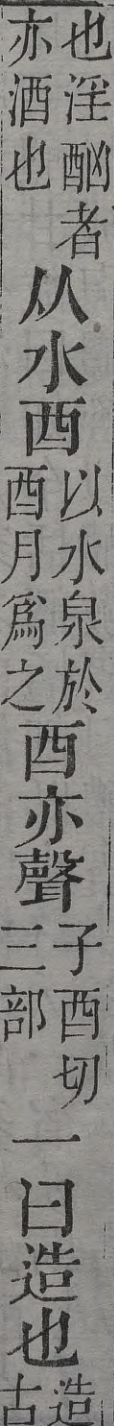 也淫酗者
亦酒也
从水酉
以水泉於
酉月爲之
酉亦聲
子酉切
三部
一曰造也
造
古